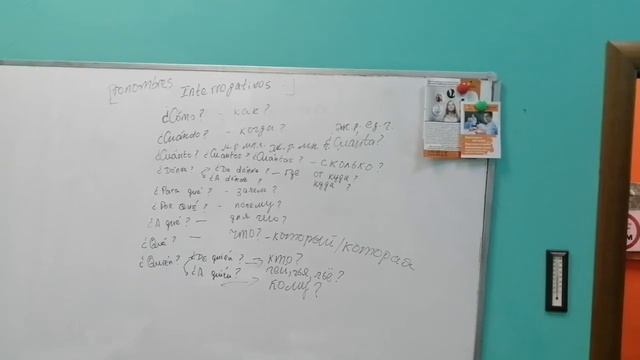 Pronombres Interrogativos
¿Cómo? - как?
¿Cuándo? - когда? ж.р. ед.ч.
м.р мн.ч. ж.р. мн.ч ¿Cuánta?
¿Cuánto? ¿Cuántos? ¿Cuántas? - сколько?
¿Dónde? ¿De dónde? - где от куда?
¿A dónde? куда?
¿Para qué? - зачем?
¿Por qué? - почему?
¿A qué? - для чего?
¿Qué? - что? - который/которая
¿Quién? ¿De quién? → кто?
чей, чья, чьё?
¿A quién? → кому?